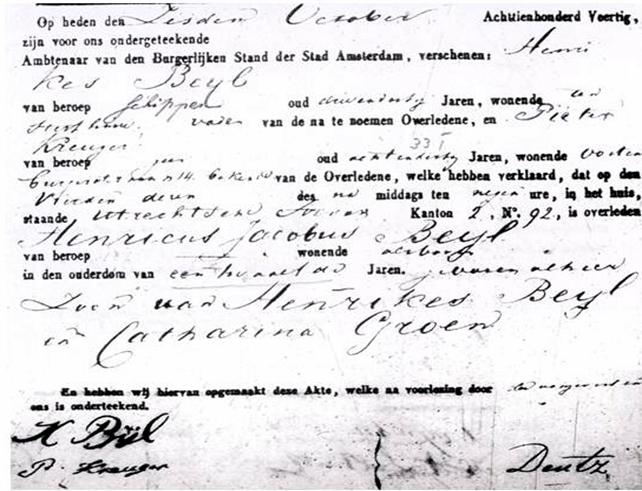 Op heden den Zesden October Achttienhonderd Veertig,
zijn voor ons ondergeteekende
Ambtenaar van den Burgerlijken Stand der Stad Amsterdam, verschenen: Henri
kes Beyl
van beroep Schipper oud drieendertig Jaren, wonende
vader van de na te noemen Overledene, en Pieter
Kreuger 33
van beroep oud achtendertig Jaren, wonende
van de Overledene, welke hebben verklaard, dat op den
Vierden dezer des na middags ten negen ure, in het huis,
staande Utrechtsche Kanton 2, No. 92, is overleden
Henricus Jacobus Beyl
van beroep wonende
in den ouderdom van Jaren.
Zoon van Henrikes Beyl
en Catharina Groen
En hebben wij hiervan opgemaakt deze Akte, welke na voorlezing door
ons is onderteekend.
P. Kreuger Deutz